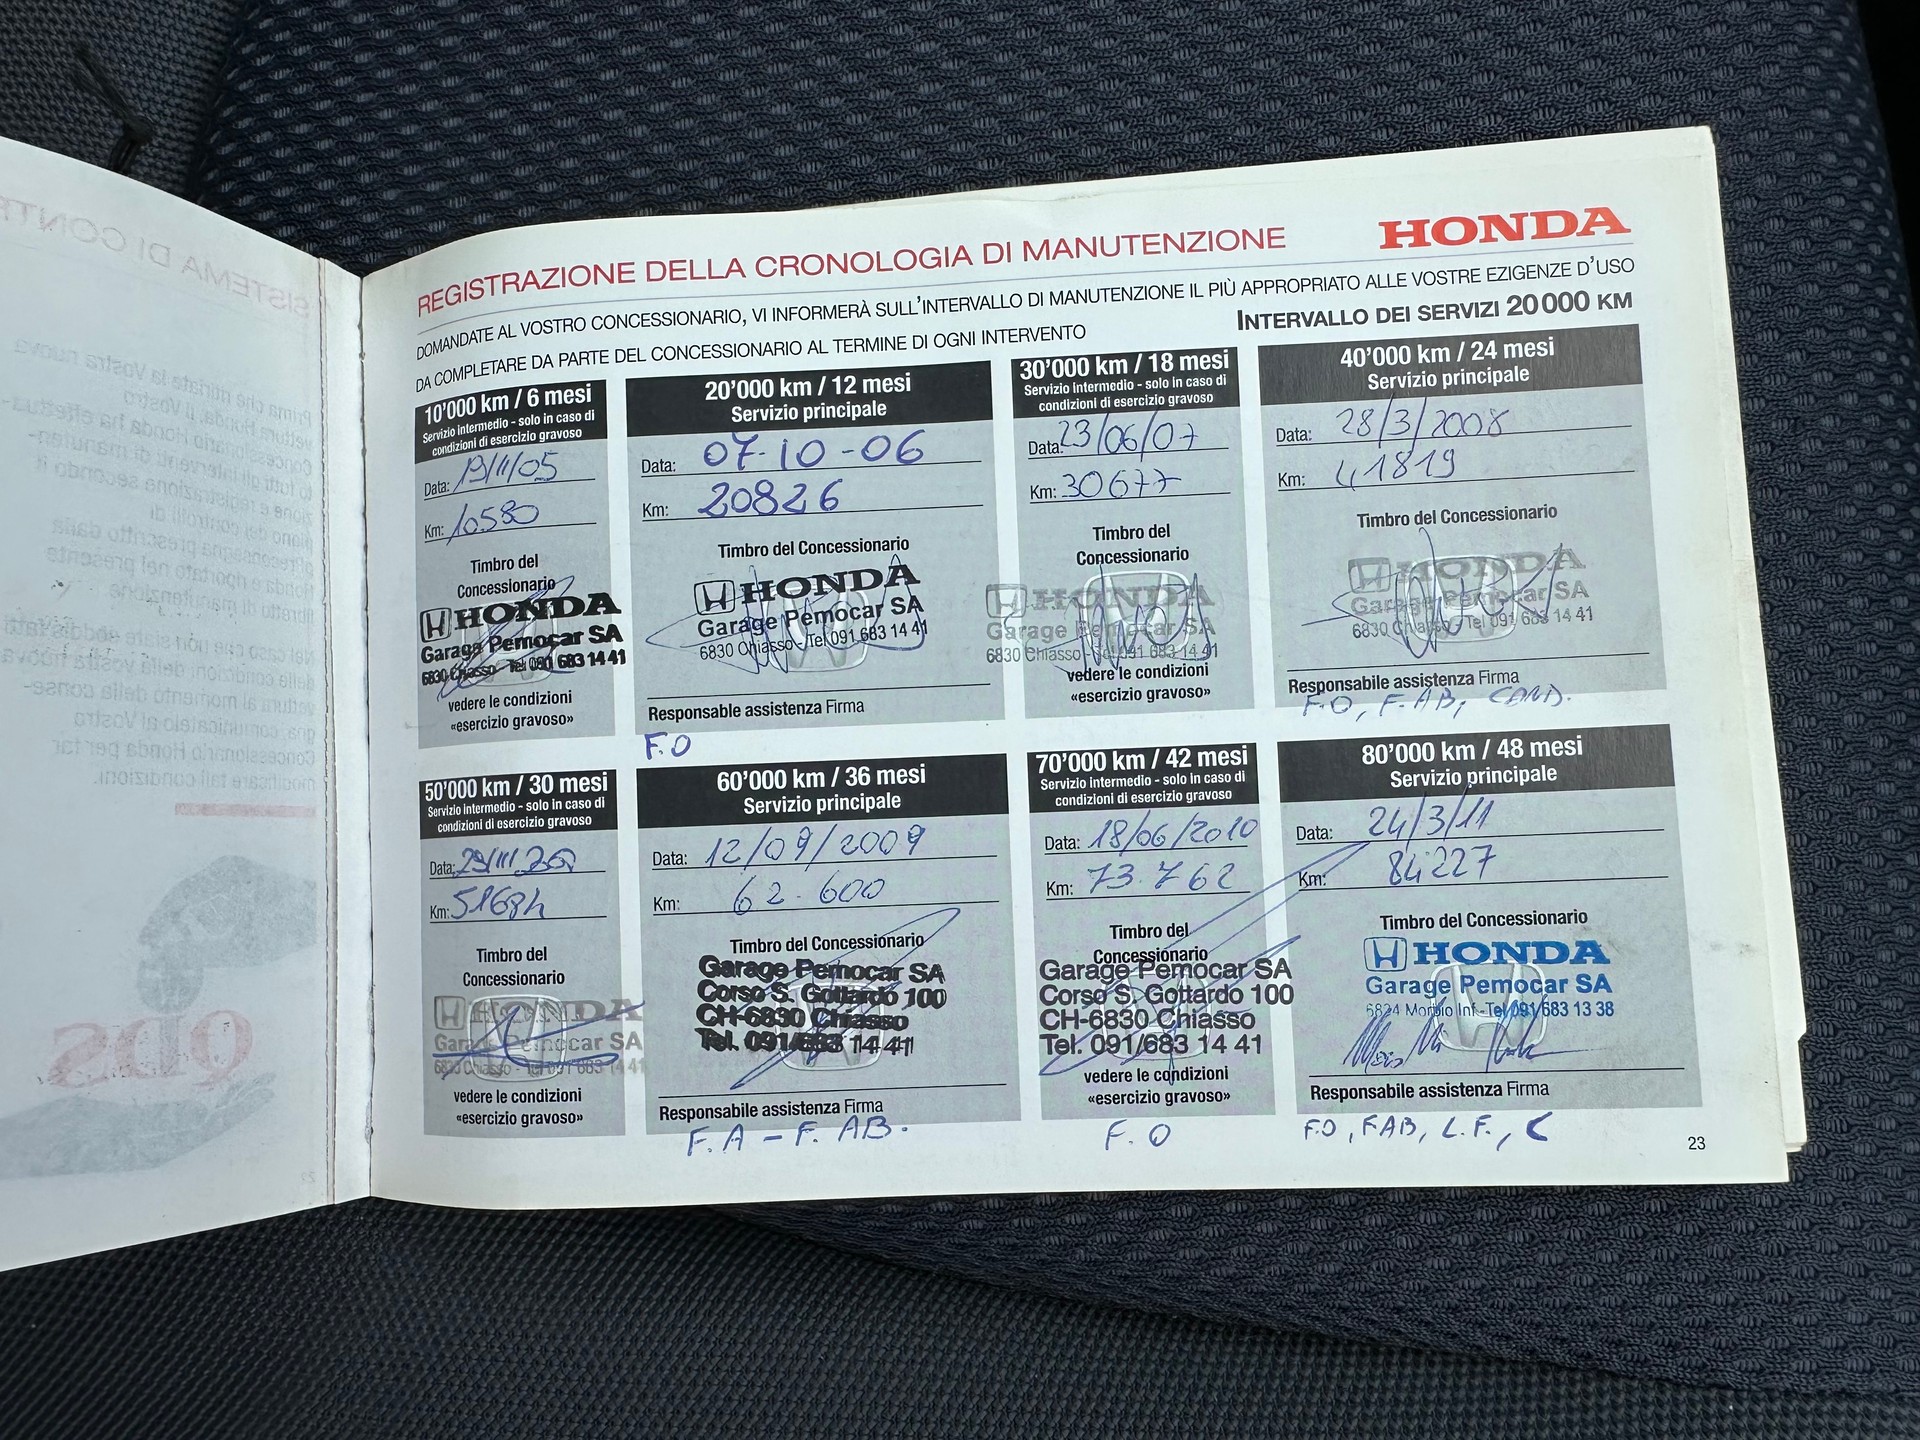 REGISTRAZIONE DELLA CRONOLOGIA DI MANUTENZIONE
HONDA
DOMANDATE AL VOSTRO CONCESSIONARIO, VI INFORMERÀ SULL'INTERVALLO DI MANUTENZIONE IL PIÙ APPROPRIATO ALLE VOSTRE EZIGENZE D'USO
DA COMPLETARE DA PARTE DEL CONCESSIONARIO AL TERMINE DI OGNI INTERVENTO
INTERVALLO DEI SERVIZI 20 000 KM
10'000 km / 6 mesi
Servizio intermedio - solo in caso di
condizioni di esercizio gravoso
Data: 19/11/05
Km: 10580
Timbro del
Concessionario
HONDA
Garage Pemocar SA
6830 Chiasso - Tel 091 683 14 41
vedere le condizioni
«esercizio gravoso»
20'000 km / 12 mesi
Servizio principale
Data: 07-10-06
Km: 20826
Timbro del Concessionario
HONDA
Garage Pemocar SA
6830 Chiasso - Tel 091 683 14 41
Responsabile assistenza Firma
F.O
30'000 km / 18 mesi
Servizio intermedio - solo in caso di
condizioni di esercizio gravoso
Data: 23/06/07
Km: 30677
Timbro del
Concessionario
HONDA
Garage Pemocar SA
6830 Chiasso - Tel 091 683 14 41
vedere le condizioni
«esercizio gravoso»
40'000 km / 24 mesi
Servizio principale
Data: 28/3/2008
Km: 41819
Timbro del Concessionario
HONDA
Garage Pemocar SA
6830 Chiasso - Tel 091 683 14 41
Responsabile assistenza Firma
F.O, F.AB, COND.
50'000 km / 30 mesi
Servizio intermedio - solo in caso di
condizioni di esercizio gravoso
Data:
Km:
Timbro del
Concessionario
HONDA
Garage Pemocar SA
6830 Chiasso - Tel 091 683 14 41
vedere le condizioni
«esercizio gravoso»
60'000 km / 36 mesi
Servizio principale
Data: 12/09/2009
Km: 62.600
Timbro del Concessionario
Garage Pemocar SA
Corso S. Gottardo 100
CH-6830 Chiasso
Tel. 091/683 14 41
Responsabile assistenza Firma
F.A - F. AB.
70'000 km / 42 mesi
Servizio intermedio - solo in caso di
condizioni di esercizio gravoso
Data: 18/06/2010
Km: 73.762
Timbro del
Concessionario
Garage Pemocar SA
Corso S. Gottardo 100
CH-6830 Chiasso
Tel. 091/683 14 41
vedere le condizioni
«esercizio gravoso»
F. O
80'000 km / 48 mesi
Servizio principale
Data: 24/3/11
Km: 84227
Timbro del Concessionario
HONDA
Garage Pemocar SA
6834 Morbio Inf - Tel 091/683 13 38
Responsabile assistenza Firma
F.O, F.AB, L.F., C
23